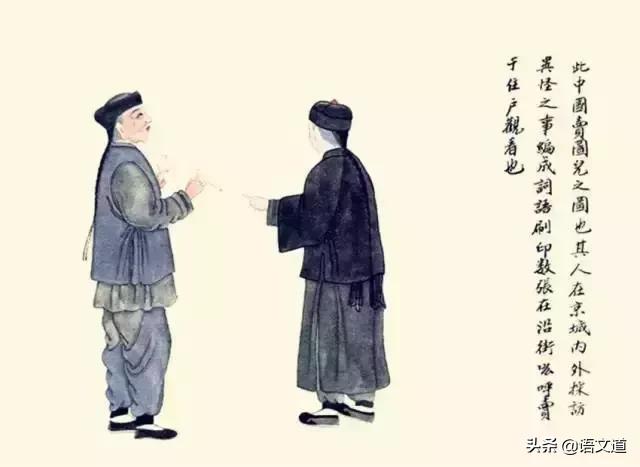 此中國賣圖兒之圖也其人在京城内外採訪
異怪之事編成詞語刷印数張在沿街吆呼賣
于住戶觀看也
头条 @语文道